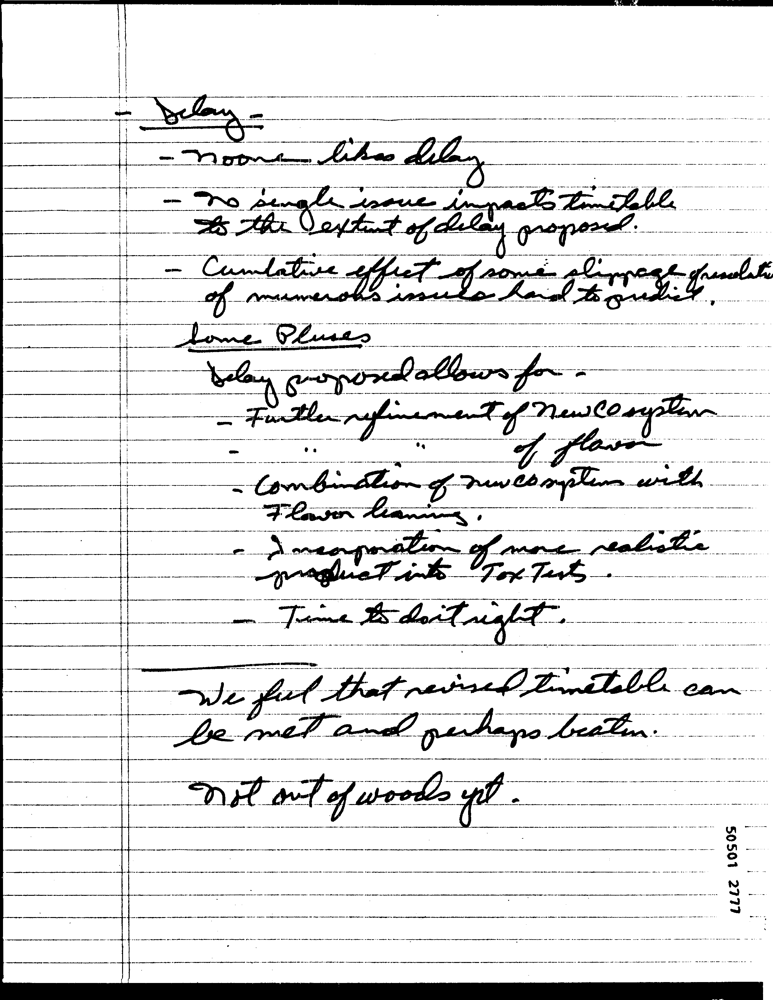 - Delay -
- Noone likes delay
- No single issue impacts timetable
to the extent of delay proposed.
- Cumlative effect of some slippage & resolution
of numerous issues hard to predict.
Some Pluses
Delay proposed allows for -
- Further refinement of New CO system
- " " of flavor
- Combination of new CO system with
Flavor learning.
- Incorporation of more realistic
product into Tox Tests.
- Time to do it right.
We feel that revised timetable can
be met and perhaps beaten.
Not out of woods yet.
50501 2777